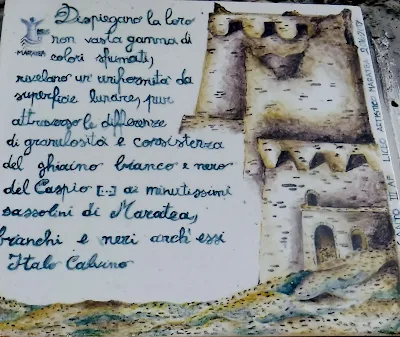 Dispiegano la loro
non vasta gamma di
colori sfumati,
MARATEA
rivelano un'uniformità da
superficie lunare, pur
attraverso le differenze
di granulosità e consistenza
del ghiaino bianco e nero
del Caspio [...] ai minutissimi
sassolini di Maratea,
bianchi e neri anch'essi
Italo Calvino
LICEO ARTISTICO MARATEA